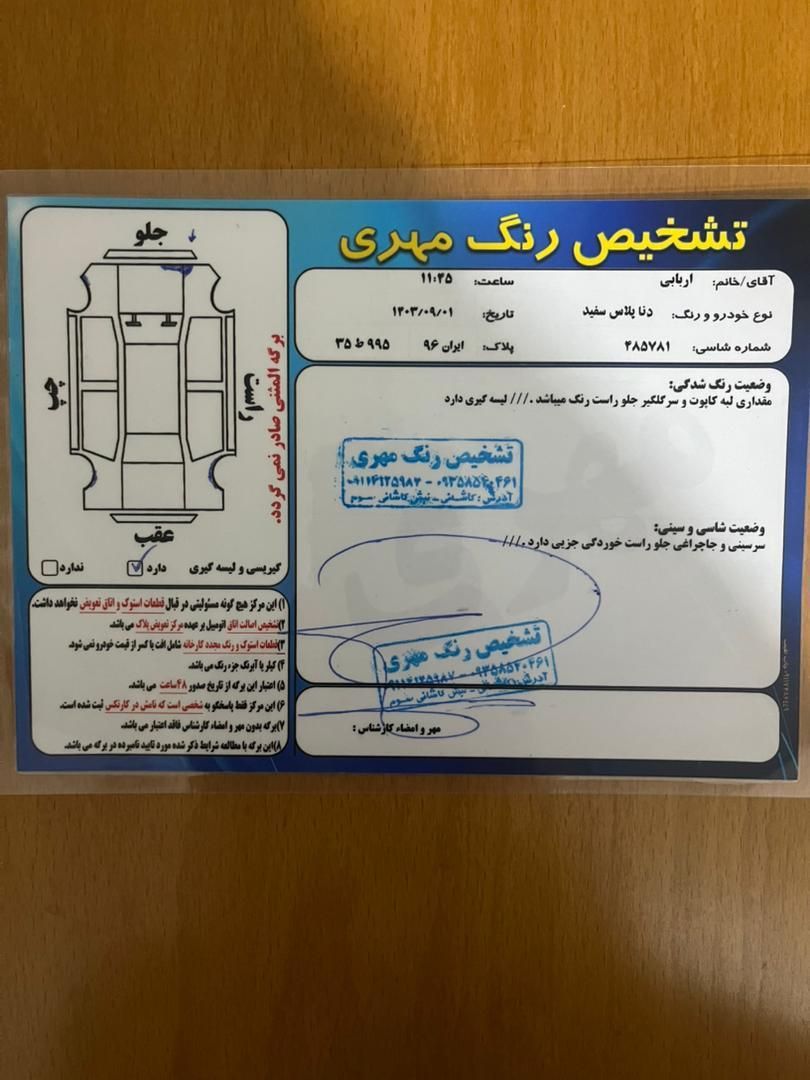 تشخیص رنگ مهری
آقای/خانم: اربابی ساعت: ۱۱:۴۵
نوع خودرو و رنگ: دنا پلاس سفید تاریخ: ۱۴۰۳/۰۹/۰۱
شماره شاسی: ۴۸۵۷۸۱ پلاک: ایران ۹۶ ۹۹۵ ط ۳۵
وضعیت رنگ شدگی:
مقداری لبه کاپوت و سرگلگیر جلو راست رنگ میباشد ./// لیسه گیری دارد
تشخیص رنگ مهری
آدرس: کاشانی - نبش کاشانی سوم
وضعیت شاسی و سینی:
سرسینی و جاچراغی جلو راست خوردگی جزیی دارد .///
تشخیص رنگ مهری
نبش کاشانی سوم
مهر و امضاء کارشناس :
جلو
چپ
راست
عقب
برگه المثنی صادر نمی گردد.
گیریسی و لیسه گیری دارد ندارد
۱) این مرکز هیچ گونه مسئولیتی در قبال قطعات استوک و اتاق تعویض نخواهد داشت.
۲)تشخیص اصالت اتاق اتومبیل بر عهده مرکز تعویض پلاک می باشد.
۳)قطعات استوک و رنگ مجدد کارخانه شامل افت یا کسر از قیمت خودرو نمی شود.
۴) کیلر یا آبرنگ جزء رنگ می باشد.
۵) اعتبار این برگه از تاریخ صدور ۴۸ساعت می باشد.
۶) این مرکز فقط پاسخگو به شخصی است که نامش در کارتکس ثبت شده است.
۷)برگه بدون مهر و امضاء کارشناس فاقد اعتبار می باشد.
۸)این برگه با مطالعه شرایط ذکر شده مورد تایید نامبرده در برگه می باشد.